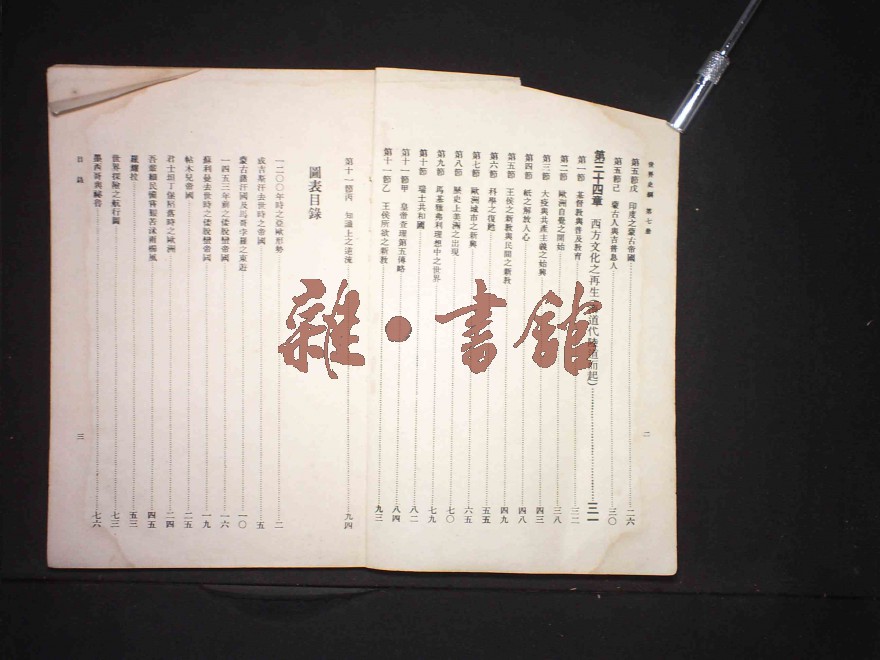 世界史綱 第七册
二
第五節戊 印度之蒙古帝國 二六
第五節己 蒙古人與吉普息人 三〇
第三十四章 西方文化之再生(海道代陸道而起) 三一
第一節 基督教與普及教育 三二
第二節 歐洲自覺之開始 三八
第三節 大疫與共產主義之始興 四三
第四節 紙之解放人心 四八
第五節 王侯之新教與民間之新教 四九
第六節 科學之復甦 五五
第七節 歐洲城市之新興 六五
第八節 歷史上美洲之出現 七〇
第九節 馬基雅弗利理想中之世界 七九
第十節 瑞士共和國 八二
第十一節甲 皇帝查理第五傳略 八四
第十一節乙 王侯所欲之新教 九三
第十一節丙 知識上之逆流 九四
圖表目錄
一二〇〇年時之亞歐形勢 二
成吉斯汗去世時之帝國 五
蒙古諸汗國及馬哥孛羅之東遊 一〇
一四五三年前之倭脫蠻帝國 一六
蘇利曼去世時之倭脫蠻帝國 一九
帖木兒帝國 二五
君士坦丁堡陷落時之歐洲 二四
吾儕願民備嘗艱苦沐雨櫛風 四五
羅耀拉 五三
世界探險之航行圖 七三
墨西哥與秘魯 七六
目錄
三
雜·書館